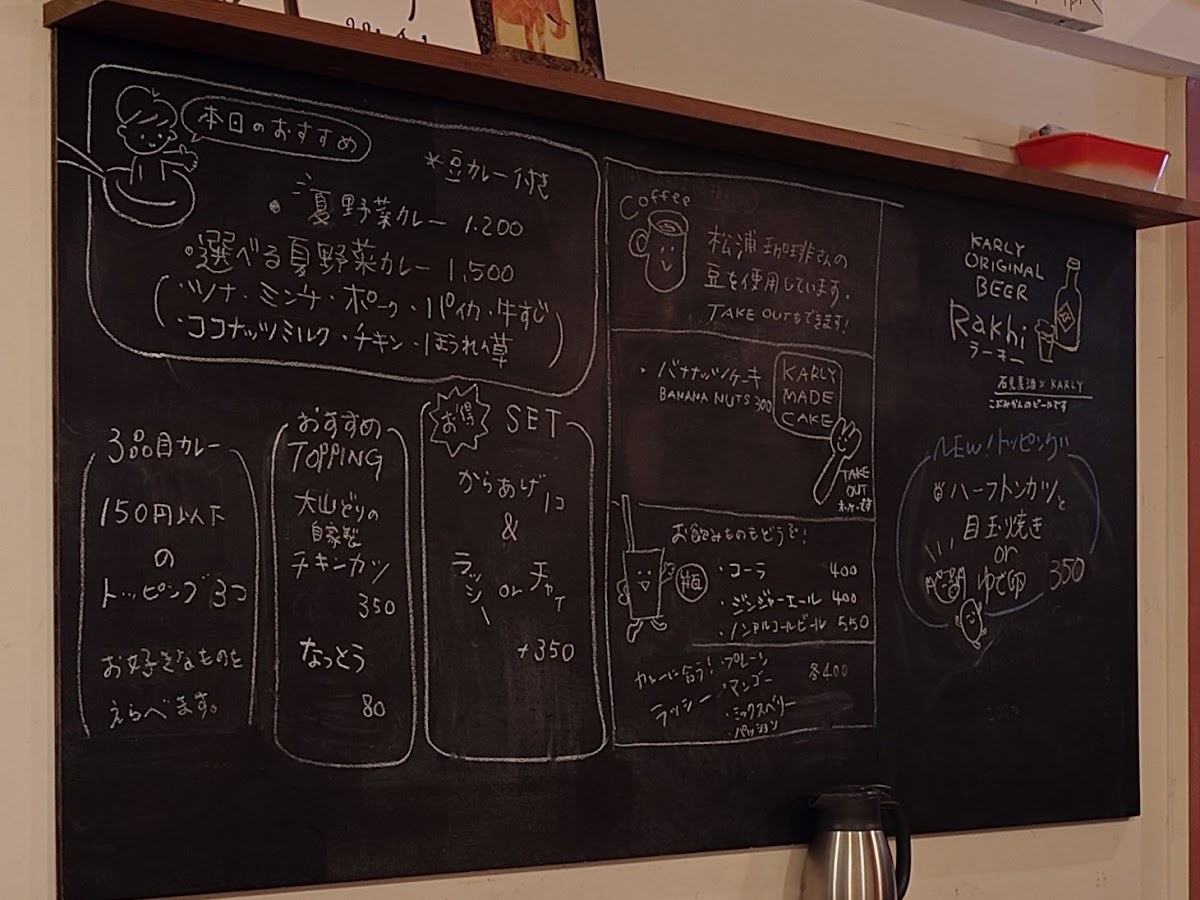 本日のおすすめ
*豆カレー付き
・夏野菜カレー 1.200
・選べる夏野菜カレー 1,500
(・ツナ・ミンチ・ポーク・パイカ・牛すじ
・ココナッツミルク・チキン・ほうれん草)
3品目カレー
150円以下
の
トッピング3コ
お好きなものを
えらべます。
おすすめ
TOPPING
大山どりの
自家製
チキンカツ
350
なっとう
80
お得 SET
からあげ1コ
&
ラッシー or チャイ
+350
Coffee
松浦珈琲さんの
豆を使用しています.
TAKE OUTもできます!
・バナナッツケーキ
BANANA NUTS 300
KARLY
MADE
CAKE
TAKE
OUT
お飲みものもどうぞ!
瓶
・コーラ 400
・ジンジャーエール 400
・ノンアルコールビール 550
カレーに合う!
ラッシー
・プレーン 各400
・マンゴー
・ミックスベリー
・パッション
KARLY
ORIGINAL
BEER
Rakhi
ラーキー
石見麦酒×KARLY
こぶみかんのビールです
NEW!トッピング
ハーフトンカツと
目玉焼き
or
ゆで卵 350